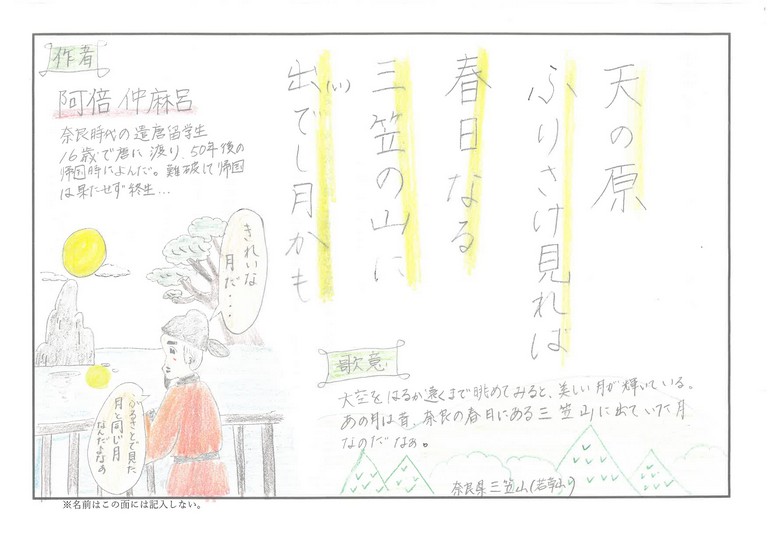 天の原
ふりさけ見れば
春日なる
三笠の山に
出(い)でし月かも
作者
阿倍仲麻呂
奈良時代の遣唐留学生
16歳で唐に渡り、50年後の
帰国時によんだ。難破して帰国
は果たせず終生…
きれいな
月だ・・・
ふるさとで見た
月と同じ月
なんだよなぁ
歌意
大空をはるか遠くまで眺めてみると、美しい月が輝いている。
あの月は昔、奈良の春日にある三笠山に出ていた月
なのだなぁ。
奈良県三笠山(若草山)
※名前はこの面には記入しない。